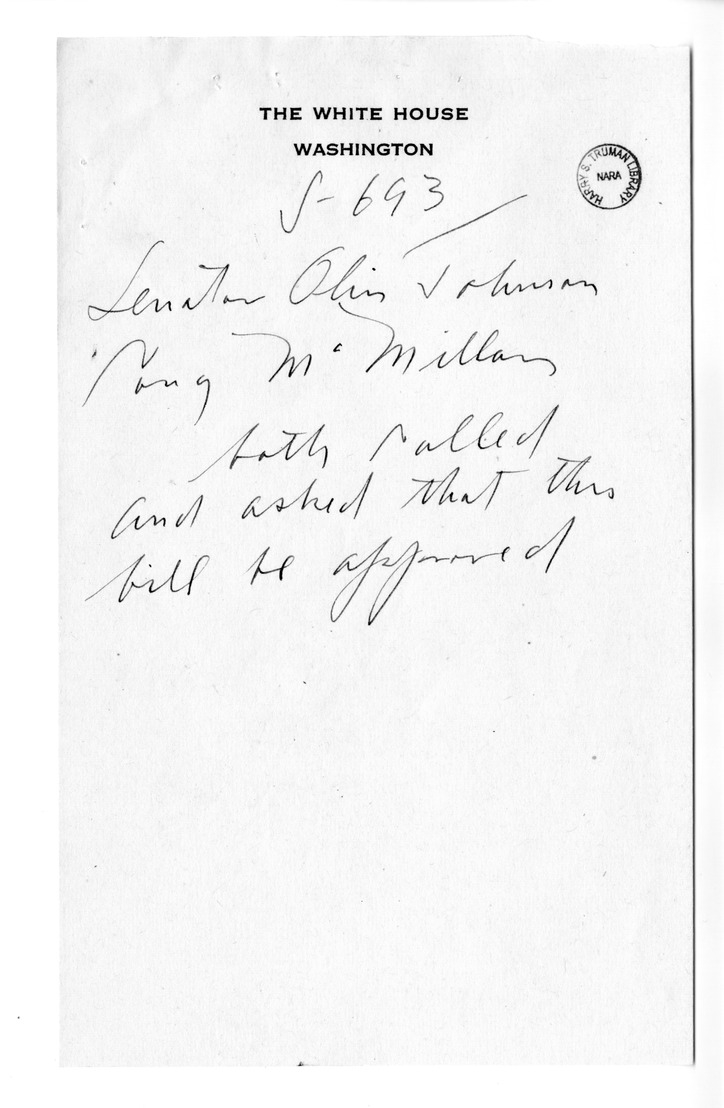 THE WHITE HOUSE
WASHINGTON
HARRY S. TRUMAN LIBRARY
NARA
S-693
Senator Olin Johnson
Cong McMillan
both called
and asked that this
bill be approved